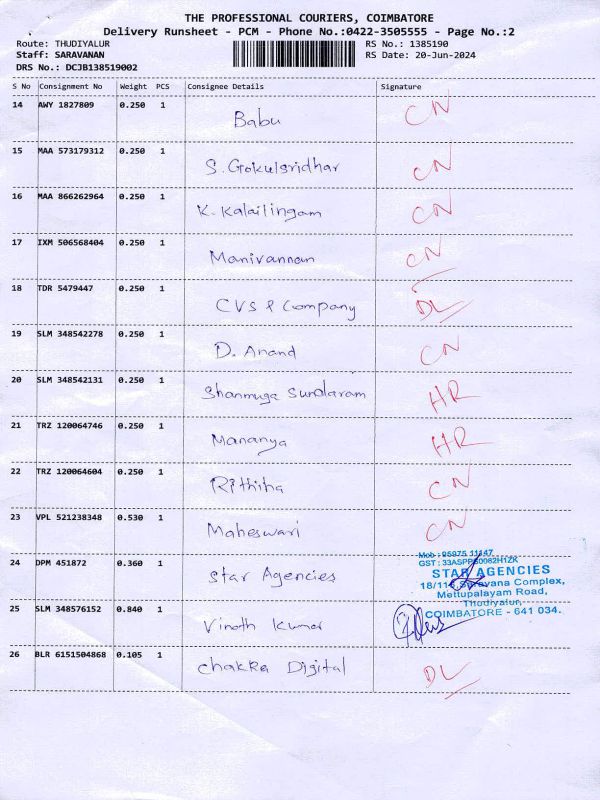 THE PROFESSIONAL COURIERS, COIMBATORE
Delivery Runsheet - PCM - Phone No.:0422-3505555 - Page No.:2
Route: THUDIYALUR RS No.: 1385190
Staff: SARAVANAN RS Date: 20-Jun-2024
DRS No.: DCJB138519002
S No Consignment No Weight PCS Consignee Details Signature
14 AWY 1827809 0.250 1 Babu CN
15 MAA 573179312 0.250 1 S. Gokulsridhar CN
16 MAA 866262964 0.250 1 K. Kalailingam CN
17 IXM 506568404 0.250 1 Manivannan CN
18 TDR 5479447 0.250 1 CVS & Company DL
19 SLM 348542278 0.250 1 D. Anand CN
20 SLM 348542131 0.250 1 Shanmuga Sundaram HR
21 TRZ 120064746 0.250 1 Mananya HR
22 TRZ 120064604 0.250 1 Rithiha CN
23 VPL 521238348 0.530 1 Maheswari CN
24 DPM 451872 0.360 1 Star Agencies
Mob : 95975 11147
GST : 
STAR AGENCIES
Saravana Complex,
Mettupalayam Road,
Thudiyalur,
COIMBATORE - 641 034.
25 SLM 348576152 0.840 1 Vinoth Kumar
26 BLR 6151504868 0.105 1 Chakra Digital DL